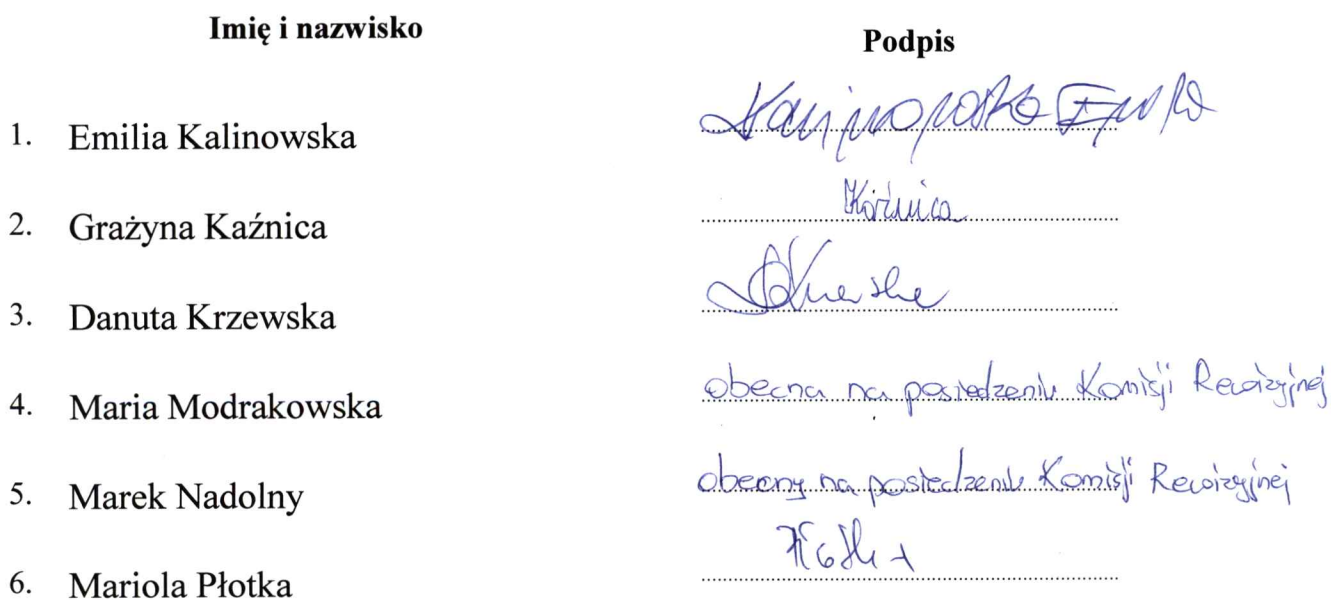 Imię i nazwisko
Podpis
1. Emilia Kalinowska Kalinowska Emilia
2. Grażyna Kaźnica Kaźnica
3. Danuta Krzewska
4. Maria Modrakowska obecna na posiedzeniu Komisji Rewizyjnej
5. Marek Nadolny obecny na posiedzeniu Komisji Rewizyjnej
6. Mariola Płotka